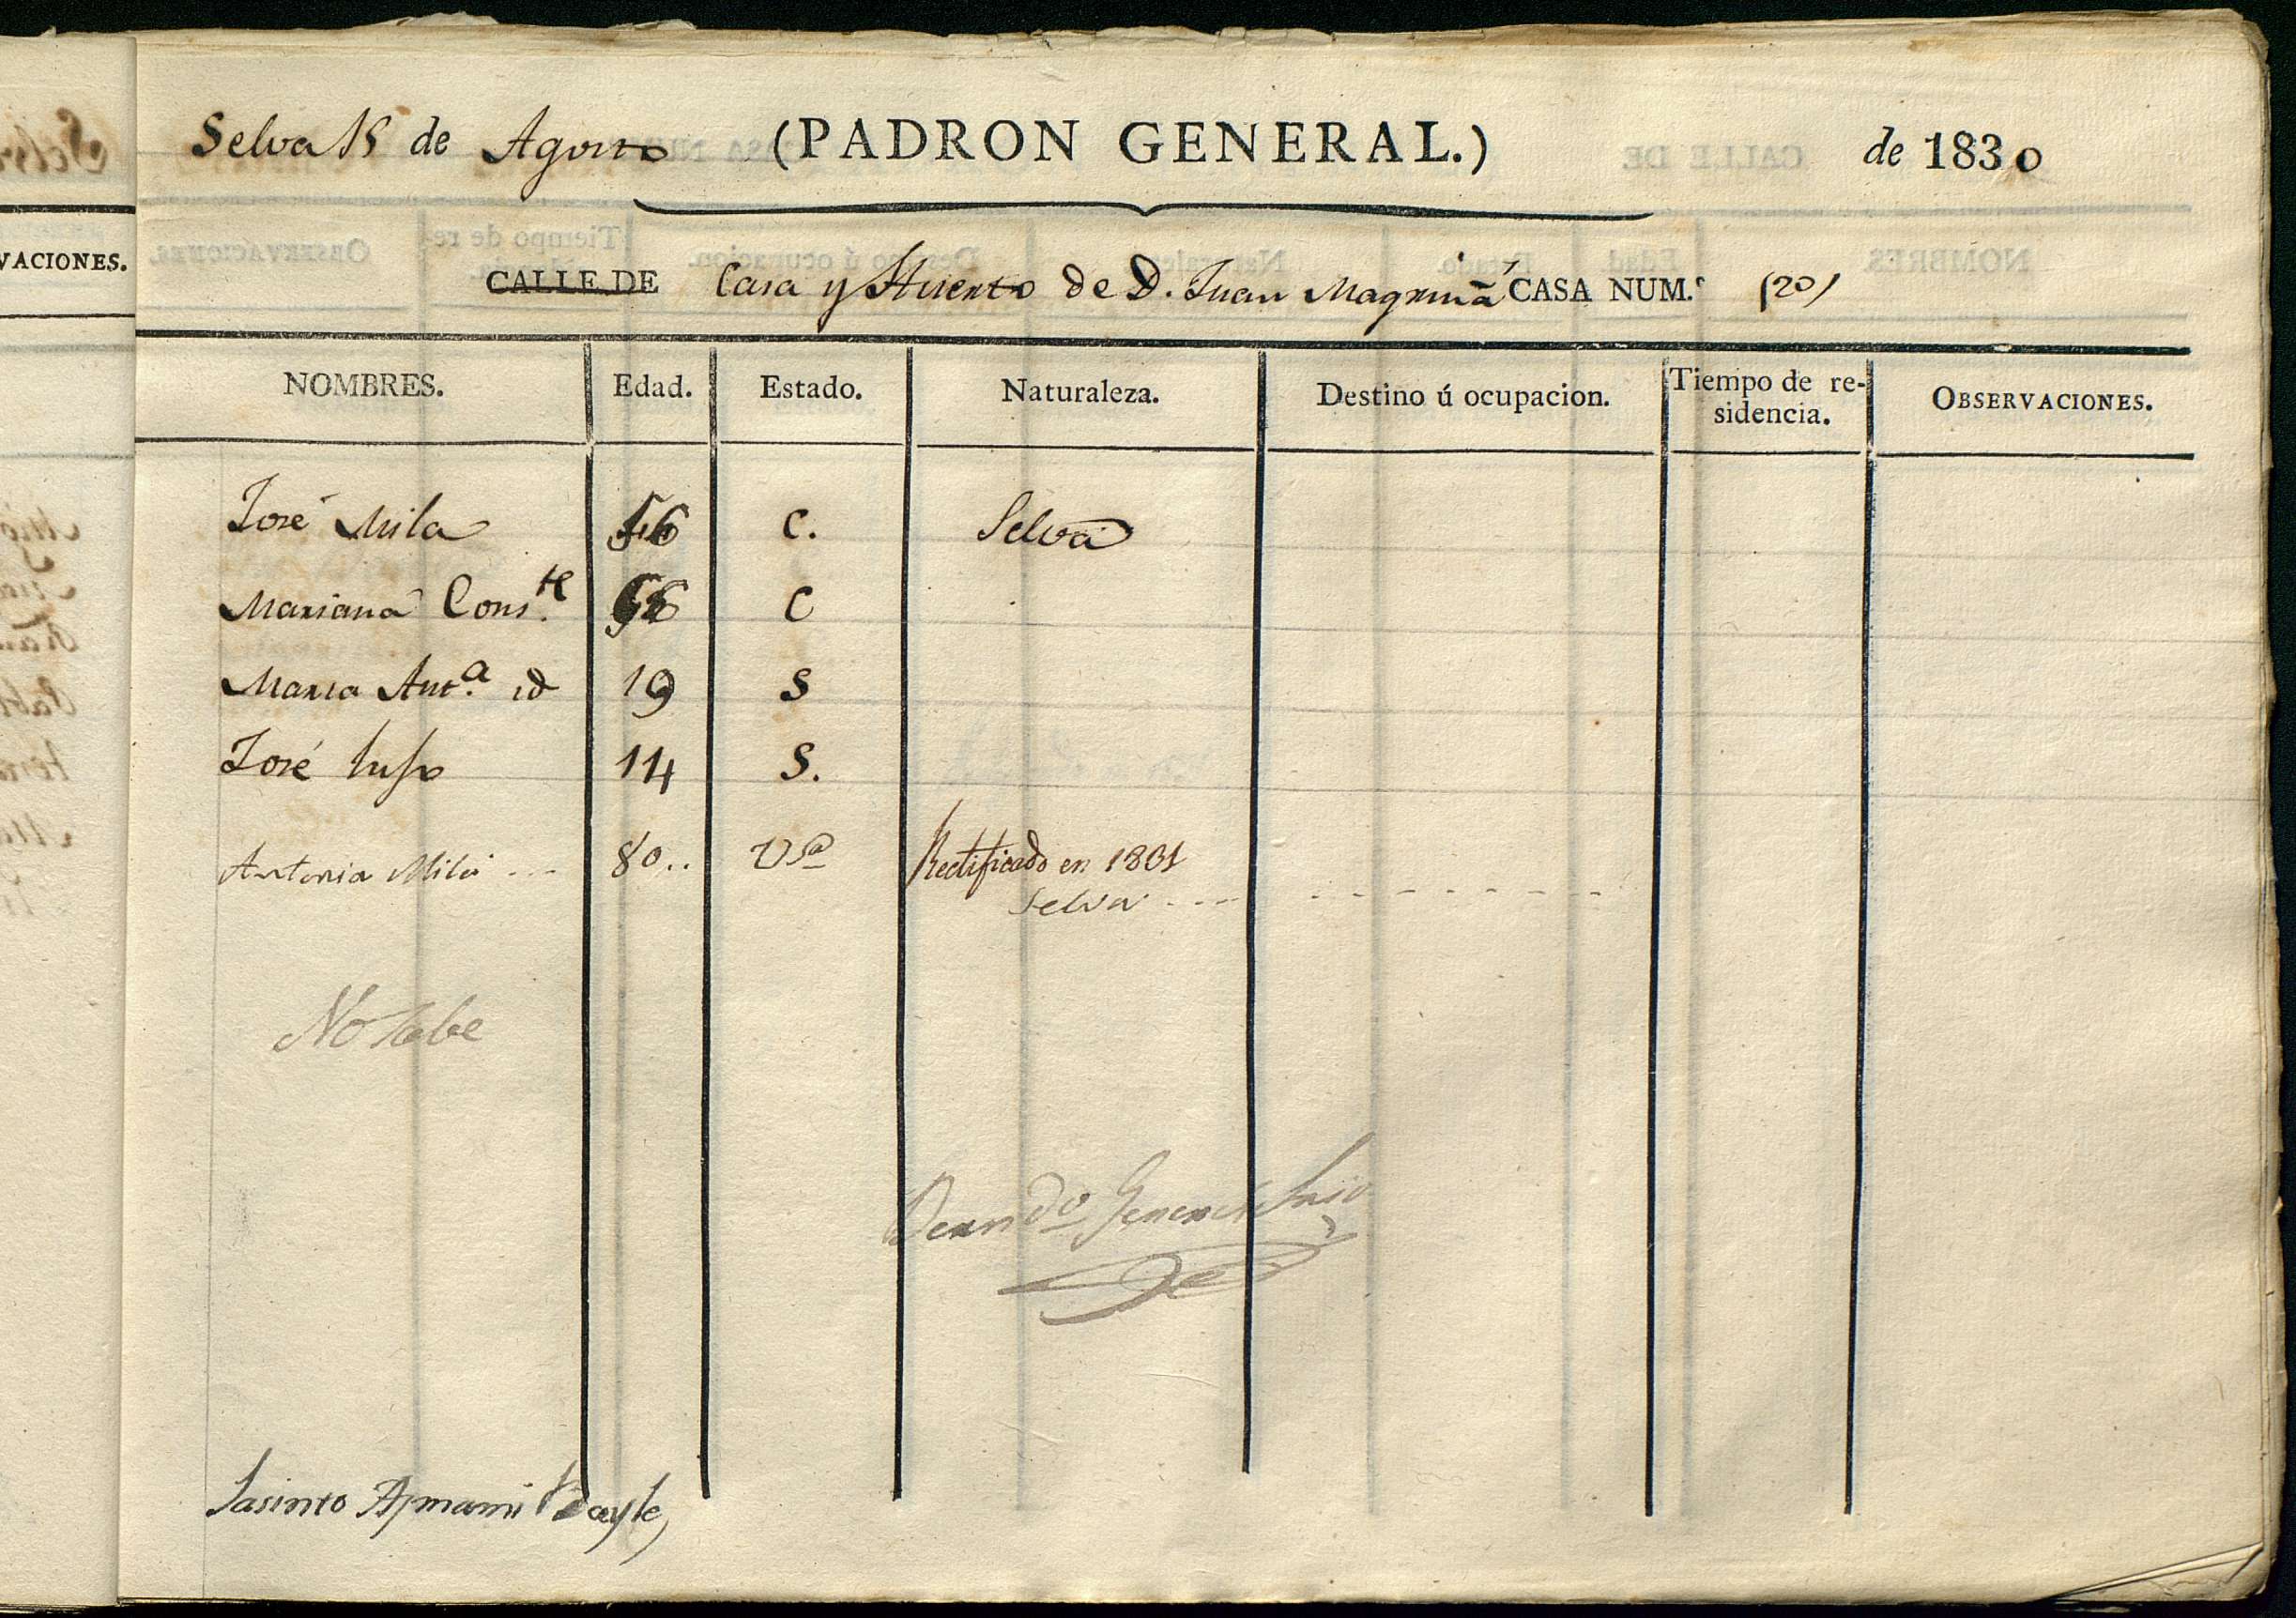 Selva 15 de Agosto (PADRON GENERAL.) de 1830
CALLE DE Casa y Huerto de D. Juan Magriñá CASA NUM.º (20)
VACIONES.
NOMBRES. Edad. Estado. Naturaleza. Destino ú ocupacion. Tiempo de re-
sidencia. OBSERVACIONES.
José Mila 56 C. Selva
Mariana Cons.te C
Maria Ant.a id 19 S
José 14 S.
Antonia Mila --- 80.. V.da Rectificado en 1831
Selva
No sabe
Jacinto Bayle